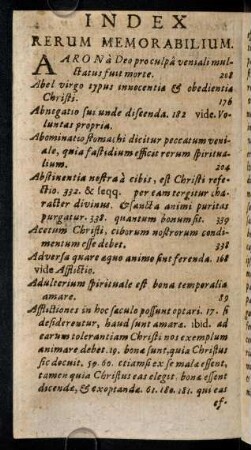 INDEX
RERUM MEMORABILIUM.
AARON à Deo pro culpâ veniali mul-
ctatus fuit morte. 218
Abel virgo typus inocentia & obedientia
Christi. 176
Abnegatio sui unde discenda. 182 vide. Vo-
luntas propria.
Abominatio stomachi dicitur peccatum veni-
ale, quia fastidium efficit rerum spiritua-
lium. 204
Abstinentia nostra à cibis, est Christi refe-
ctio. 332. & seqq. per eam tergitur cha-
racter divinus & sancta animi puritas
purgatur. 338. quantum bonum sit. 339
Acetum Christi, cibirum nostrorum condi-
mentum esse debet. 338
Adversa quare aquo animo sint ferenda. 168
vide Afflictio.
Adulterium spirituale est bona temporalia
amare. 89
Afflictiones in hoc saculo possunt optari. 17. si
desiderentur, haud sunt amara. ibid. ad
earum tolerantiam Christi nos exemplum
animare debet. 19. bona sunt, quia Christus
sic docuit. 59. 60. etiamsi ex se mala essent,
tamen quia Christus eas elegit. bona essent
dicenda, & exoptanda. 61. 180. 181. qui eas
ef-